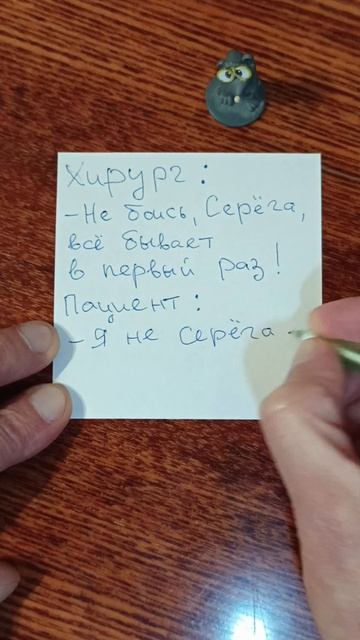 Хирург:
-Не боись, Серёга,
всё бывает
в первый раз!
Пациент:
-Я не серёга